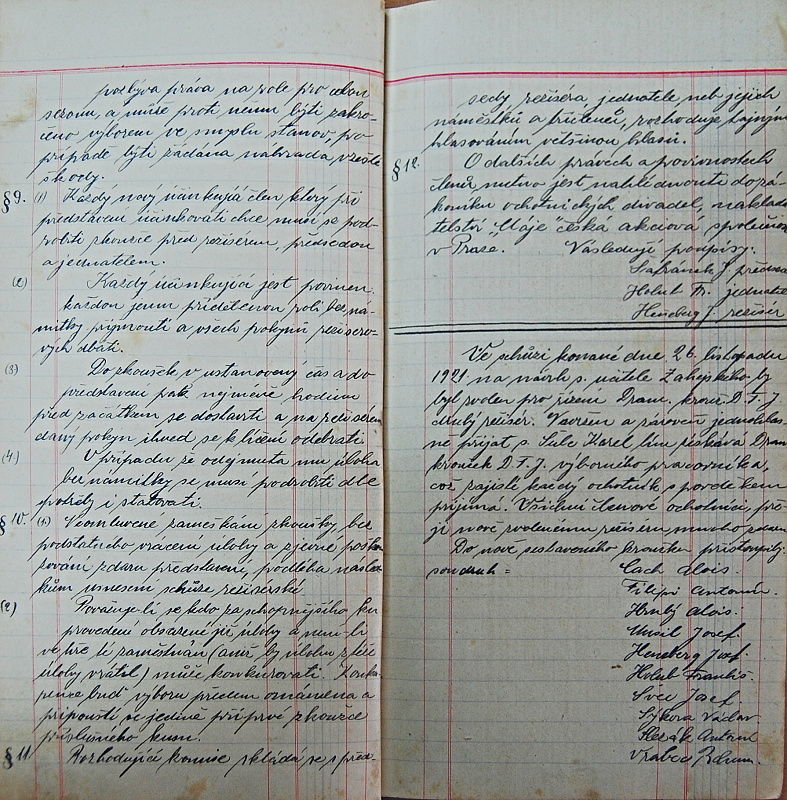 pozbývá práva na role pro celou
sezonu a může proti němu býti zakro-
čeno výborem ve smyslu stanov, po
případě býti žádána náhrada vzešlé
škody.
§ 9. (1) Každý nový účinkující člen který při
představení účinkovati chce musí se pod-
robiti zkoušce před režisérem, předsedou
a jednatelem.
(2) Každý účinkující jest povinen
každou jemu přidělenou roli bez ná-
mitky přijmouti a všech pokynů režisero-
vých dbáti.
(3) Do zkoušek v ustanovený čas a do
představení pak nejméně hodinu
před začátkem se dostaviti a na režiserem
daný pokyn ihned se k líčení odebrati.
(4.) V případu že odejmuta mu úloha
bez námitky se musí podrobiti dle
potřeby i statovati.
§ 10. (1.) Neomluvené zameškání zkoušky, bez
podstatného vrácení úlohy a zjevné poško-
zování zdaru představení, podléhá násled-
kům usnesení schůze režisérské.
(2) Považuje-li se kdo za schopnějšího ku
provedení obsazené již úlohy a není-li
ve hře té zaměstnán (aniž by úlohu z téže
úlohy vrátil) může konkurovati. Konku-
rence budiž výboru předem oznámena a
připouští se jedině při prvé zkoušce
příslušného kusu.
§ 11 Rozhodující komise skládá se s před-
sedy režiséra, jednatele neb jejich
náměstků a třídenci, rozhoduje tajným
hlasováním většinou hlasů.
§ 12. O dalších právech a povinnostech
členů nutno jest nahlédnouti do zá-
koníku ochotnických divadel, naklada-
telství "Máje česká akciová společnost
v Praze. Následují podpisy:
Šafránek J. předseda
Holub Fr. jednatel
Henzberg J. režisér
Ve schůzi konané dne 26. listopadu
1921 na návrh s. učitele Zahejského by
byl zvolen pro řízení Dram. krouz. D. T. J.
druhý režisér. Navržen a zároveň jednohlas-
ně přijat s. Šulc Karel tím získává Dram
kroužek D. T. J. výborného pracovníka,
což zajisté každý ochotník s povděkem
přijímá. Všichni členové ochotníci, pře-
jí nově zvolenému režiseru mnoho zdaru
Do nově sestaveného kroužku přistoupily:
soudruh = Cach Alois.
Filipi Antonín.
Hrubý Alois.
Musil Josef.
Henzberg Josef
Holub Františ.
Švec Josef
Sýkora Václav
Slezák Antonín
Vrabec Zdenn.